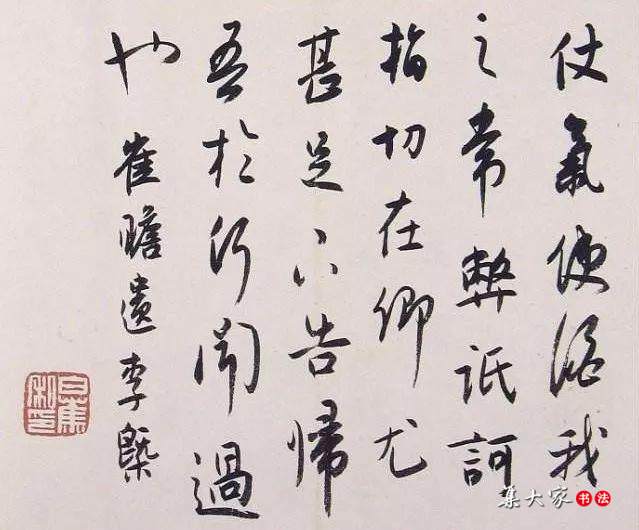 仗氣使酒我
之常弊詆訶
指切在卿尤
甚足下告歸
吾於何聞過
也 崔瞻遺李槩
白蕉私印
集大家书法